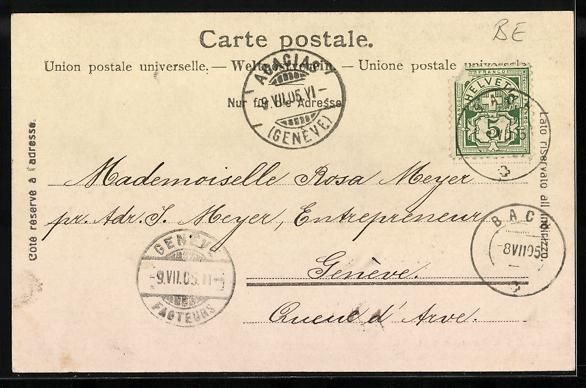 BE
Carte postale.
Union postale universelle. — Weltpostverein. — Unione postale universale.
Nur für die Adresse.
ACACIAS
9.VII.05.VI
(GENÈVE)
HELVETIA
5
Côté réservé à l'adresse.
Lato riservato all'indirizzo
Mademoiselle Rosa Meyer
pr. Adr. J. Meyer, Entrepreneur
Genève
Queue d'Arve.
GENÈVE
9.VII.05.
FACTEURS
BAC
8VII05